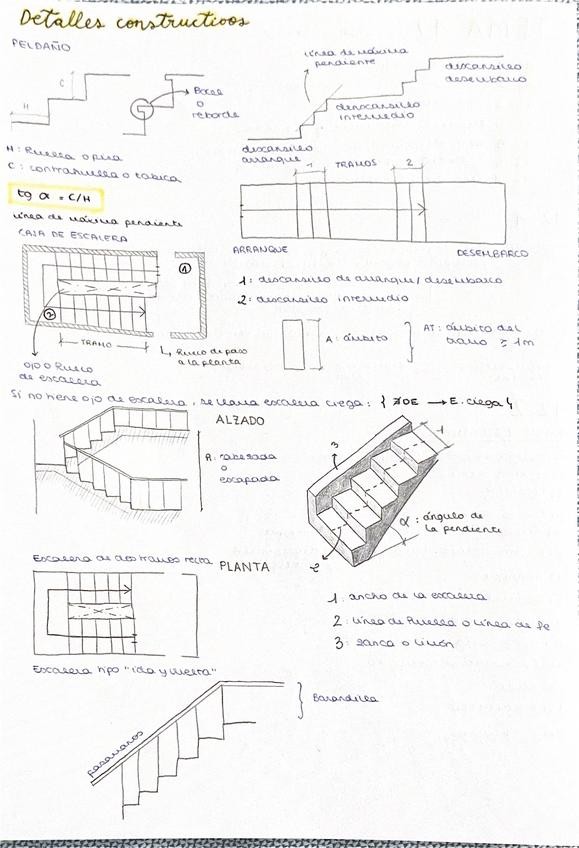 Detalles constructivos
PELDAÑO
C
H
Bocel
o
reborde
línea de máxima
pendiente
descansillo
desembarco
descansillo
intermedio
descansillo
arranque
H: Huella o pisa
C: contrahuella o tabica
tg α = C/H
línea de máxima pendiente
1
TRAMOS
2
ARRANQUE
DESEMBARCO
CAJA DE ESCALERA
1
2
TRAMO
Hueco de paso
a la planta
ojo o hueco
de escalera
1: descansillo de arranque/desembarco
2: descansillo intermedio
A: ámbito
AT: ámbito del
tramo ≥ 1m
Si no tiene ojo de escalera, se llama escalera ciega: { ∄OE → E. ciega }
ALZADO
A: cabezada
o
escapada
3
1
2
α: ángulo de
la pendiente
Escalera de dos tramos recta
PLANTA
1: ancho de la escalera
2: línea de huella o línea de fe
3: zanca o limón
Escalera tipo "ida y vuelta"
pasamanos
Barandilla